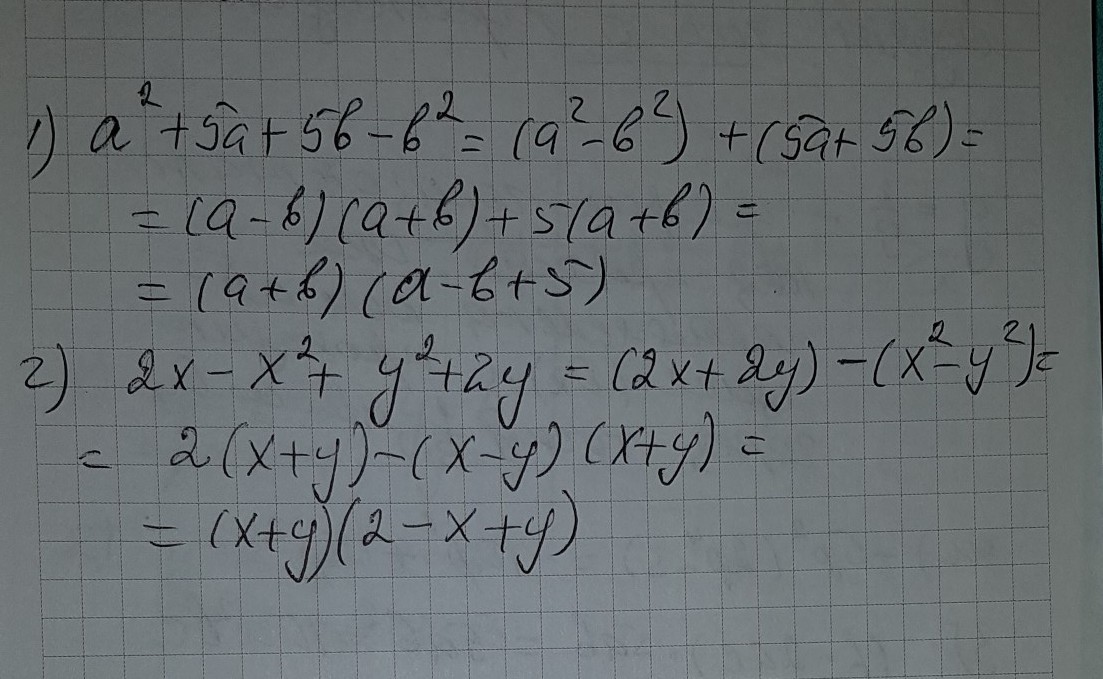 1) a² + 5a + 5b - b² = (a² - b²) + (5a + 5b) =
= (a - b)(a + b) + 5(a + b) =
= (a + b)(a - b + 5)
2) 2x - x² + y² + 2y = (2x + 2y) - (x² - y²) =
= 2(x + y) - (x - y)(x + y) =
= (x + y)(2 - x + y)